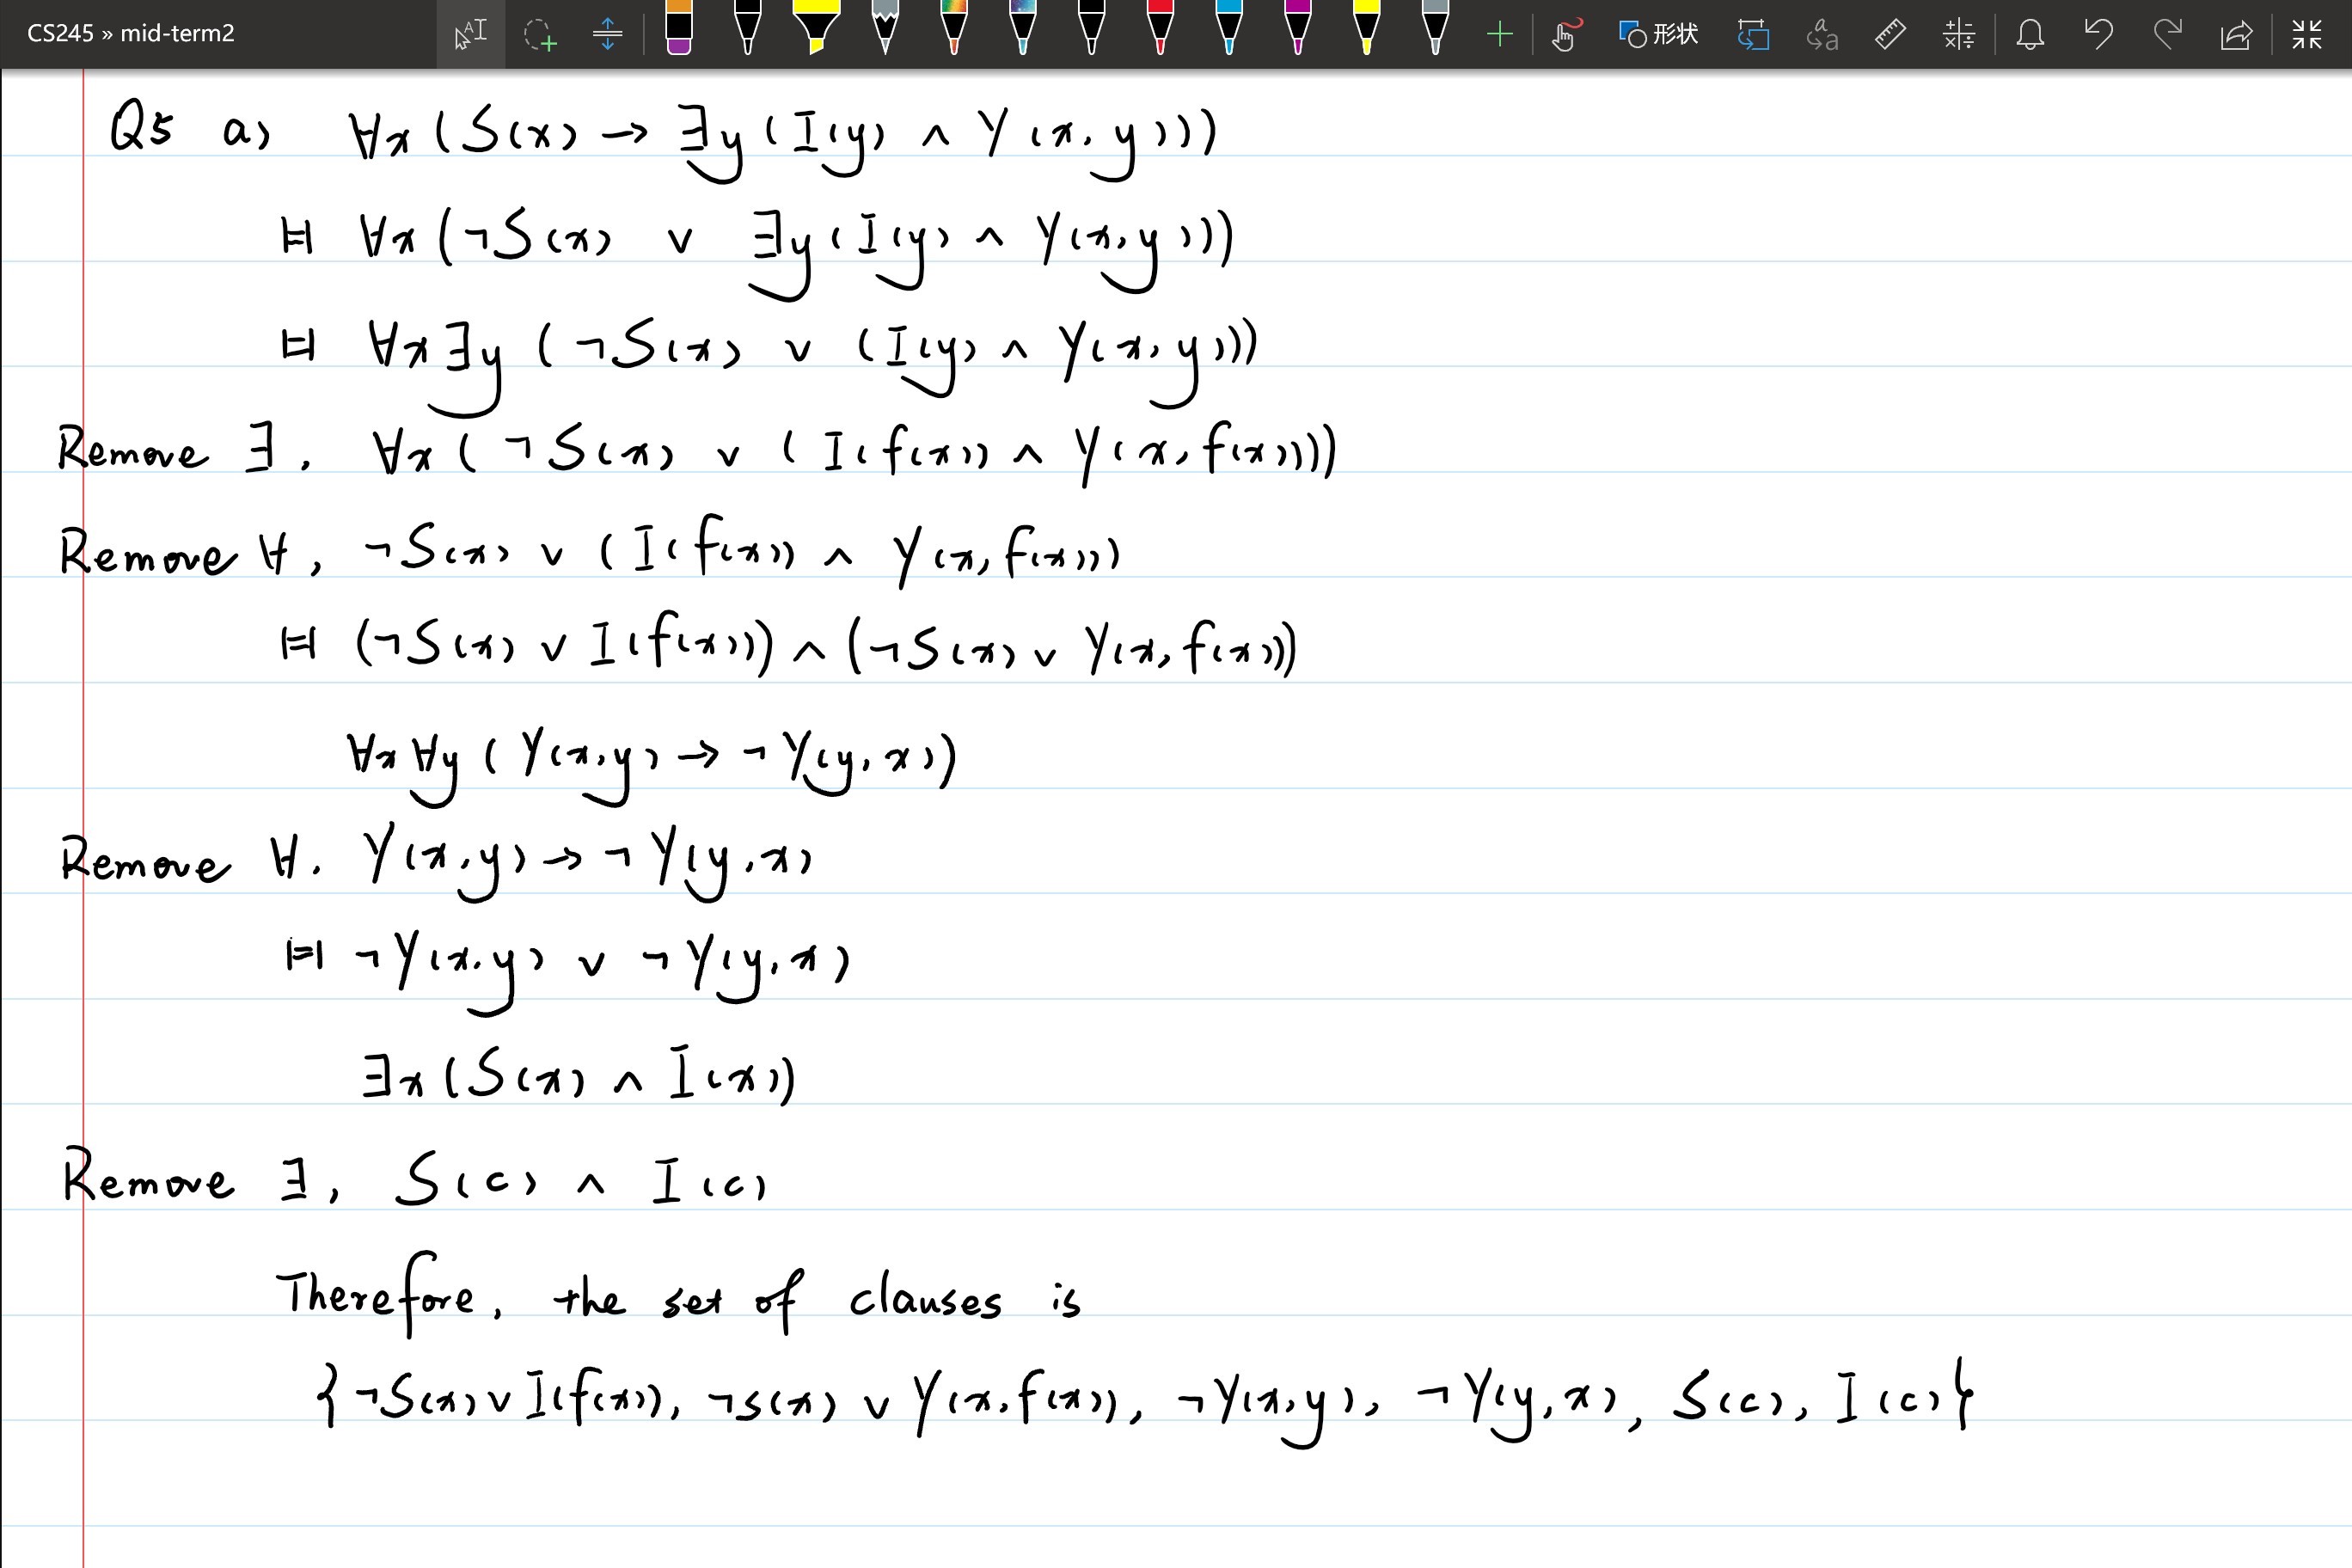 CS245 » mid-term2
形状
Q5 a) ∀x(S(x) → ∃y(I(y) ∧ Y(x,y)))
⊨ ∀x(¬S(x) ∨ ∃y(I(y) ∧ Y(x,y)))
⊨ ∀x∃y(¬S(x) ∨ (I(y) ∧ Y(x,y)))
Remove ∃, ∀x(¬S(x) ∨ (I(f(x)) ∧ Y(x,f(x))))
Remove ∀, ¬S(x) ∨ (I(f(x)) ∧ Y(x,f(x)))
⊨ (¬S(x) ∨ I(f(x))) ∧ (¬S(x) ∨ Y(x,f(x)))
∀x∀y(Y(x,y) → ¬Y(y,x))
Remove ∀. Y(x,y) → ¬Y(y,x)
⊨ ¬Y(x,y) ∨ ¬Y(y,x)
∃x(S(x) ∧ I(x))
Remove ∃, S(c) ∧ I(c)
Therefore, the set of clauses is
{¬S(x) ∨ I(f(x)), ¬S(x) ∨ Y(x,f(x)), ¬Y(x,y), ¬Y(y,x), S(c), I(c)}